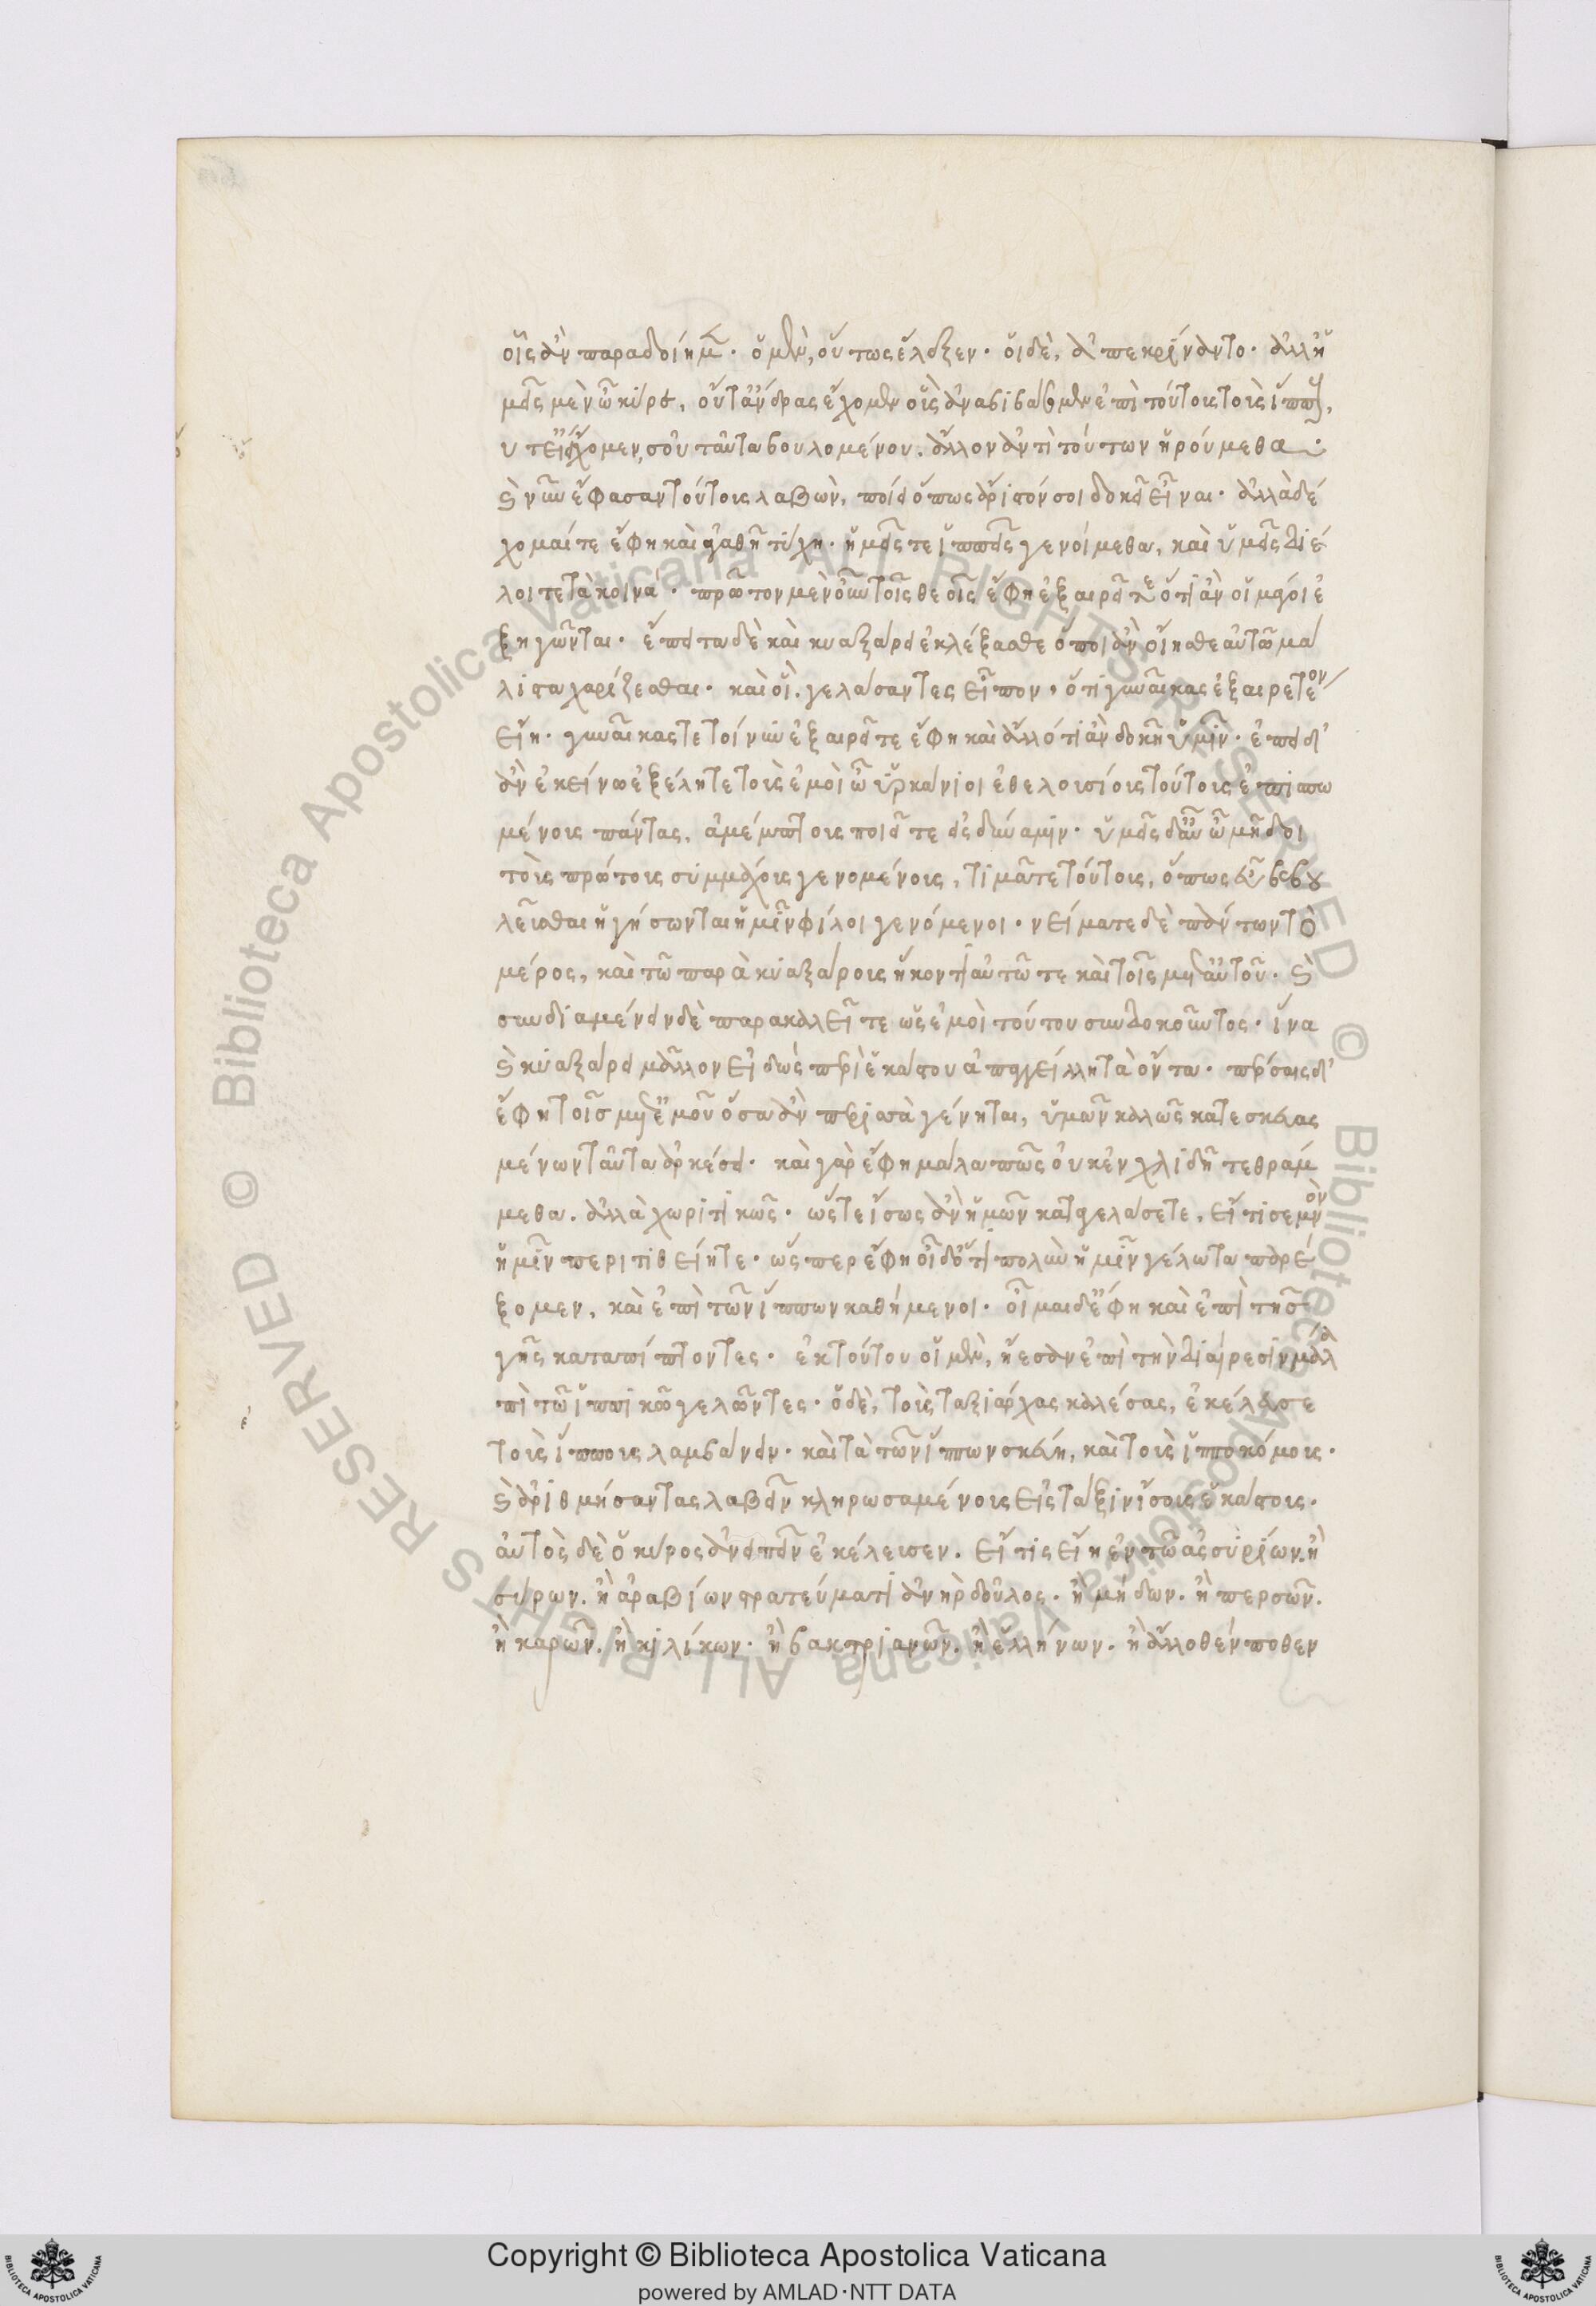 οἷς ἂν παραδοίημεν. ὁ μὲν, οὕτως ἔλεξεν. οἱ δὲ, ἀπεκρίναντο. ἀλλ' ἡ
μεῖς μὲν ὦ κῦρε, οὔτ' ἄνδρας ἔχομεν οὓς ἀναβιβάσομεν ἐπὶ τούτους τοὺς ἵππους,
οὔτ' εἰ εἴχομεν, σοῦ ταῦτα βουλομένου. ἄλλο ἀντὶ τούτων ἡρούμεθα.
καὶ νῦν ἔφασαν τούτους λαβὼν, ποίει ὅπως ἄριστόν σοι δοκεῖ εἶναι. ἀλλὰ δέ
χομαί τε ἔφη καὶ ἀγαθῇ τύχῃ. ἡμεῖς τε ἱππεῖς γενοίμεθα, καὶ ὑμεῖς διέ
λοιτε τὰ κοινά. πρῶτον μὲν οὖν τοῖς θεοῖς ἔφη ἐξαιρεῖτε ὅ τι ἂν οἱ μάγοι ἐ
ξηγῶνται. ἔπειτα δὲ καὶ κυαξάρει ἐκλέξασθε ὁποῖ' ἂν οἴησθε αὐτῷ μά
λιστα χαρίζεσθαι. καὶ οἳ. γελάσαντες εἶπον, ὅτι γυναῖκας ἐξαιρετέον
εἴη. γυναῖκάς τε τοίνυν ἐξαιρεῖτε ἔφη καὶ ἄλλο ὅ τι ἂν δοκῇ ὑμῖν. ἐπειδ'
ἂν ἐκείνῳ ἐξέλητε τοὺς ἐμοὶ ὦ ὑρκάνιοι ἐθελουσίους τούτους ἐπισπω
μένους πάντας, ἀμέμπτους ποιεῖτε εἰς δύναμιν. ὑμεῖς δ' αὖ ὦ μῆδοι
τοὺς πρώτους συμμάχους γενομένους, τιμᾶτε τούτους, ὅπως εὖ βεβου
λεῦσθαι ἡγήσωνται ἡμῖν φίλοι γενόμενοι. νείματε δὲ πάντων τὸ
μέρος, καὶ τῷ παρὰ κυαξάρους ἥκοντι αὐτῷ τε καὶ τοῖς μετ' αὐτοῦ. καὶ
συνδιαμένειν δὲ παρακαλεῖτε ὡς ἐμοὶ τούτου συνδοκοῦντος. ἵνα
καὶ κυαξάρει μᾶλλον εἰδὼς περὶ ἑκάστου ἀπαγγείλῃ τὰ ὄντα. πέρσαις δ'
ἔφη τοῖς μετ' ἐμοῦ ὅσα ἂν περισσὰ γένηται, ὑμῶν καλῶς κατεσκευας
μένων ταῦτα ἀρκέσει. καὶ γὰρ ἔφη μάλα πως οὐκ ἐν χλιδῇ τεθράμ
μεθα. ἀλλὰ χωριτικῶς. ὥστε ἴσως ἂν ἡμῶν καταγελάσετε, εἴ τι σεμνὸν
ἡμῖν περιτιθείητε. ὥσπερ ἔφη οἶδ' ὅτι πολὺν ἡμῖν γέλωτα παρέ
ξομεν, καὶ ἐπὶ τῶν ἵππων καθήμενοι. οἶμαι δ' ἔφη καὶ ἐπὶ τῆς
γῆς καταπίπτοντες. ἐκ τούτου οἱ μὲν, ᾔεσαν ἐπὶ τὴν διαίρεσιν μάλα ἐ
πὶ τῷ ἱππικῷ γελῶντες. ὁ δὲ, τοὺς ταξιάρχας καλέσας, ἐκέλευσε
τοὺς ἵππους λαμβάνειν. καὶ τὰ τῶν ἵππων σκεύη, καὶ τοὺς ἱπποκόμους.
καὶ ἀριθμήσαντας λαβεῖν κληρωσαμένους εἰς τάξιν ἴσους ἑκάστοις.
αὐτὸς δὲ ὁ κῦρος ἀνειπεῖν ἐκέλευσεν. εἴ τις εἴη ἐν τῷ ἀσσυρίων. ἢ
σύρων. ἢ ἀραβίων στρατεύματι ἀνὴρ δοῦλος. ἢ μήδων. ἢ περσῶν.
ἢ καρῶν. ἢ κιλίκων. ἢ βακτριανῶν. ἢ ἑλλήνων. ἢ ἄλλοθέν ποθεν
Copyright © Biblioteca Apostolica Vaticana
powered by AMLAD·NTT DATA